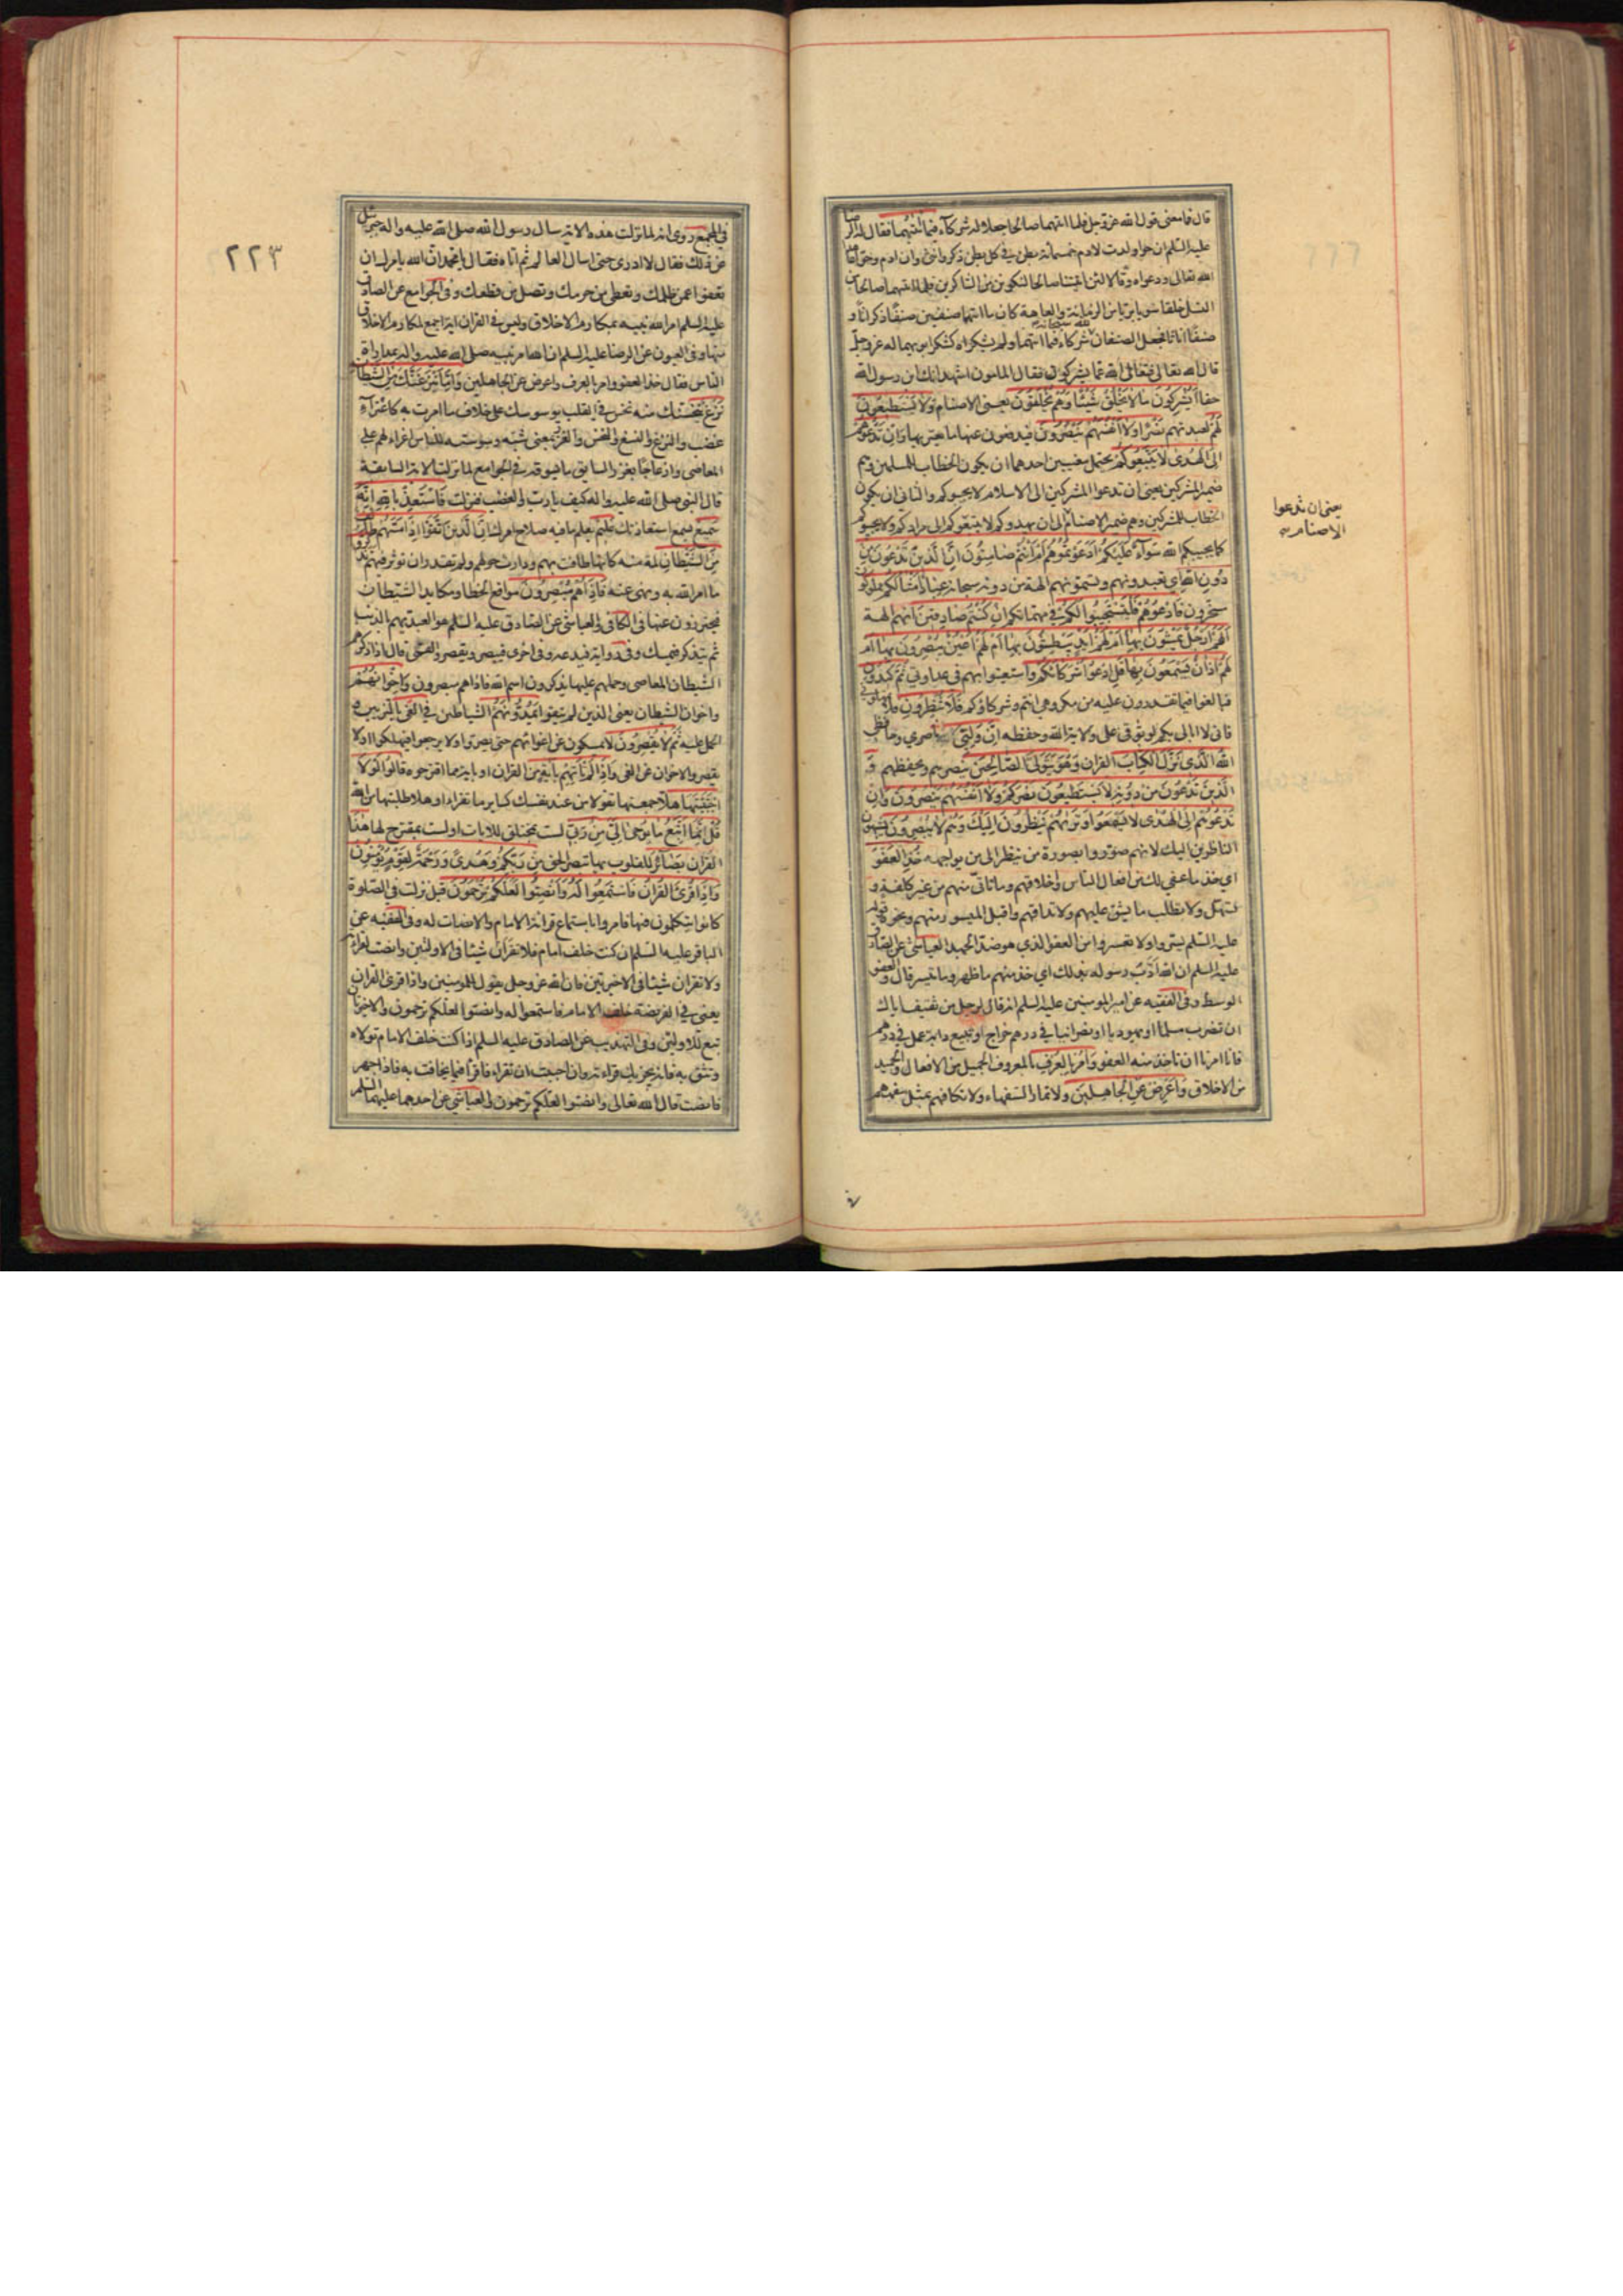 قال فما معنى قول الله عز وجل فلما اتيهما صالحا جعلا له شركآء فيما اتيهما فقال له الرضا
عليه السلم ان حوا ولدت لادم خمسمائة بطن في كل بطن ذكر وانثى وان ادم وحوا عاهدا
الله تعالى ودعواه وقالا لئن اتيتنا صالحا لنكونن من الشاكرين فلما اتيهما صالحا من
النسل خلقا سويا بريا من الزمانة والعاهة كان ما اتيهما صنفين صنفا ذكرانا و
صنفا اناثا فجعل الصنفان لله سبحانه شركاء فيما اتيهما ولم يشكراه كشكر ابويهما له عز وجل
قال الله تعالى فتعالى الله عما يشركون فقال المامون اشهد انك ابن رسول الله
حقا اَيُشْرِكُونَ مَا لَا يَخْلُقُ شَيْئًا وَهُمْ يُخْلَقُونَ يعنى الاصنام وَلَا يَسْتَطيعُونَ
لَهُمْ لعبدتهم نَصْرًا وَلَا اَنْفُسَهُمْ يَنْصُرُونَ فيدفعون عنها ما يعتريها وَاِنْ تَدْعُوهُمْ
اِلَى الْهُدى لَا يَتَّبِعُوكُمْ يحتمل معنيين احدهما ان يكون الخطاب للمسلمين وهم
ضمير المشركين يعنى ان تدعوا المشركين الى الاسلام لا يجيبوكم والثانى ان يكون
الخطاب للمشركين وهم ضمير الاصنام الى ان يهدوكم لا يتبعوكم الى مرادكم ولا يجيبوكم
يعنى ان تدعوا
الاصنام
كما يجيبكم الله سَوَآءٌ عَلَيْكُمْ اَدَعَوْتُمُوهُمْ اَمْ اَنْتُمْ صَامِتُونَ اِنَّ الَّذينَ تَدْعُونَ مِنْ
دُونِ اللهِ اي تعبدونهم وتسمونهم الهة من دونه سبحانه عِبَادٌ اَمْثَالُكُمْ مملوكون
مسخرون فَادْعُوهُمْ فَلْيَسْتَجيبُوا لَكُمْ في مهماتكم اِنْ كُنْتُمْ صَادِقينَ انهم الهة
اَلَهُمْ اَرْجُلٌ يَمْشُونَ بِهَا اَمْ لَهُمْ اَيْدٍ يَبْطِشُونَ بِهَا اَمْ لَهُمْ اَعْيُنٌ يُبْصِرُونَ بِهَا اَمْ
لَهُمْ اذَانٌ يَسْمَعُونَ بِهَا قُلِ ادْعُوا شُرَكَائَكُمْ واستعينوا بهم في عداوتي ثُمَّ كيدُونِ
فبالغوا فيما تقدرون عليه من مكروهي انتم وشركاؤكم فَلَا تُنْظِرُونِ فلا تمهلوني
فانى لا ابالى بكم لوثوقى على ولاية الله وحفظه اِنَّ وَلِيِّيَ ناصري وحافظي
اللهُ الَّذى نَزَّلَ الْكِتَابَ القران وَهُوَ يَتَوَلَّى الصَّالِحينَ ينصرهم ويحفظهم وَ
الَّذينَ تَدْعُونَ مِنْ دُونِهِ لَا يَسْتَطيعُونَ نَصْرَكُمْ وَلَا اَنْفُسَهُمْ يَنْصُرُونَ وَاِنْ
تَدْعُوهُمْ اِلَى الْهُدى لَا يَسْمَعُوا وَتَرٰيهُمْ يَنْظُرُونَ اِلَيْكَ وَهُمْ لَا يُبْصِرُونَ يشبهون
الناظرين اليك لانهم صوّروا بصورة من ينظر الى من يواجهه خُذِ الْعَفْوَ
اي خذ ما عفى لك من افعال الناس واخلاقهم وما تاتى منهم من غير كلفة و
تسهل ولا تطلب ما يشق عليهم ولا تداقهم واقبل الميسور منهم ونحوه قوله
عليه السلم يسّروا ولا تعسروا من العفو الذى هو ضد الجهد العياشي عن الصادق
عليه السلم ان الله اَدَّبَ رسوله بذلك اي خذ منهم ما ظهر وما تيسر قال والعفو
الوسط وفى الفقيه عن امير المومنين عليه السلم انه قال لرجل من ثقيف اياك
ان تضرب مسلما او يهوديا او نصرانيا في درهم خراج او تبيع دابة عمل في درهم
فانا امرنا ان ناخذ منه العفو وَأْمُرْ بِالْعُرْفِ بالمعروف الجميل من الافعال والحميد
من الاخلاق وَاَعْرِضْ عَنِ الْجَاهِلينَ ولا تمار السفهاء ولا تكافهم بمثل سفههم
في
٢٢٣
في المجمع روى انه لما نزلت هذه الاية سال رسول الله صلى الله عليه واله جبرئيل
عن ذلك فقال لا ادرى حتى اسال العالم ثم اتاه فقال يا محمد ان الله يامرك ان
تعفوا عمن ظلمك وتعطى من حرمك وتصل من قطعك وفى الجوامع عن الصادق
عليه السلم امر الله نبيه بمكارم الاخلاق وليس في القران اية اجمع لمكارم الاخلاق
منها وفى العيون عن الرضا عليه السلم ان الله امر نبيه صلى الله عليه واله بمداراة
الناس فقال خذ العفو وامر بالعرف واعرض عن الجاهلين وَاِمَّا يَنْزَغَنَّكَ مِنَ الشَّيْطَانِ
نَزْغٌ ينخسنك منه نخس في القلب يوسوسك على خلاف ما امرت به كاعتراءِ
غضب والنزغ والنسغ والنخس والغرز بمعنى شبّه وسوسته للناس اغراء لهم على
المعاصى وازعاجًا بغرز السايق ما يسوقه في الجوامع لما نزلت الاية السابقة
قال النبى صلى الله عليه واله كيف يا رب والغضب فنزلت فَاسْتَعِذْ بِاللهِ اِنَّهُ
سَميعٌ يسمع استعاذتك عَليمٌ يعلم ما فيه صلاح امرك اِنَّ الَّذينَ اتَّقَوْا اِذَا مَسَّهُمْ طَائِفٌ
مِنَ الشَّيْطَانِ لمة منه كانها طافت بهم ودارت حولهم ولم تقدر ان توثر فيهم تَذَكَّرُوا
ما امر الله به ونهى عنه فَاِذَا هُمْ مُبْصِرُونَ مواقع الخطا ومكايد الشيطان
فيحترزون عنها في الكافى والعياشى عن الصادق عليه السلم هو العبد يهم بالذنب
ثم يتذكر فيمسك وفى رواية فيدعه وفى اخرى فيبصر ويقصر والقمى قال اذا ذكرهم
الشيطان المعاصى وحملهم عليها يذكرون اسم الله فاذا هم مبصرون وَاِخْوَانُهُمْ
واخوان الشيطان يعنى الذين لم يتقوا يَمُدُّونَهُمْ الشياطين فِى الْغَىِّ بالتزيين و
الحمل عليه ثُمَّ لَا يُقْصِرُونَ لا يمسكون عن اغوائهم حتى يصروا ولا يرجعوا فيهلكوا او لا
يقصر والاخوان عن الغى وَاِذَا لَمْ تَأْتِهِمْ بِايَةٍ من القران او باية مما اقترحوه قَالُوا لَوْلَا
اجْتَبَيْتَهَا هلا جمعتها تقولا من عند نفسك كساير ما تقراه او هلا طلبتها من الله
قُلْ اِنَّمَا اَتَّبِعُ مَا يُوحٰى اِلَىَّ مِنْ رَبِّى لست بمختلق للايات او لست بمقترح لها هٰذَا
القران بَصَآئِرُ للقلوب بها تبصر الحق مِنْ رَبِّكُمْ وَهُدًى وَرَحْمَةٌ لِقَوْمٍ يُؤْمِنُونَ
وَاِذَا قُرِئَ الْقُرْانُ فَاسْتَمِعُوا لَهُ وَاَنْصِتُوا لَعَلَّكُمْ تُرْحَمُونَ قيل نزلت في الصلوة
كانوا يتكلمون فيها فامروا باستماع قرائة الامام والانصات له وفى الفقيه عن
الباقر عليه السلم ان كنت خلف امام فلا تقران شيئا في الاولتين وانصت لقرائته
ولا تقران شيئا في الاخيرتين فان الله عز وجل يقول للمومنين واذا قرئ القران
يعنى في الفريضة خلف الامام فاستمعوا له وانصتوا لعلكم ترحمون والاخيرتان
تبع للاولتين وفى التهذيب عن الصادق عليه السلم اذا كنت خلف الامام تولاه
وتثق به فانه يجزيك قراءته وان احببت ان تقراء فاقرأ فيما يخافت به فاذا جهر
فانصت قال الله تعالى وانصتوا لعلكم ترحمون والعياشي عن احدهما عليهما السلم